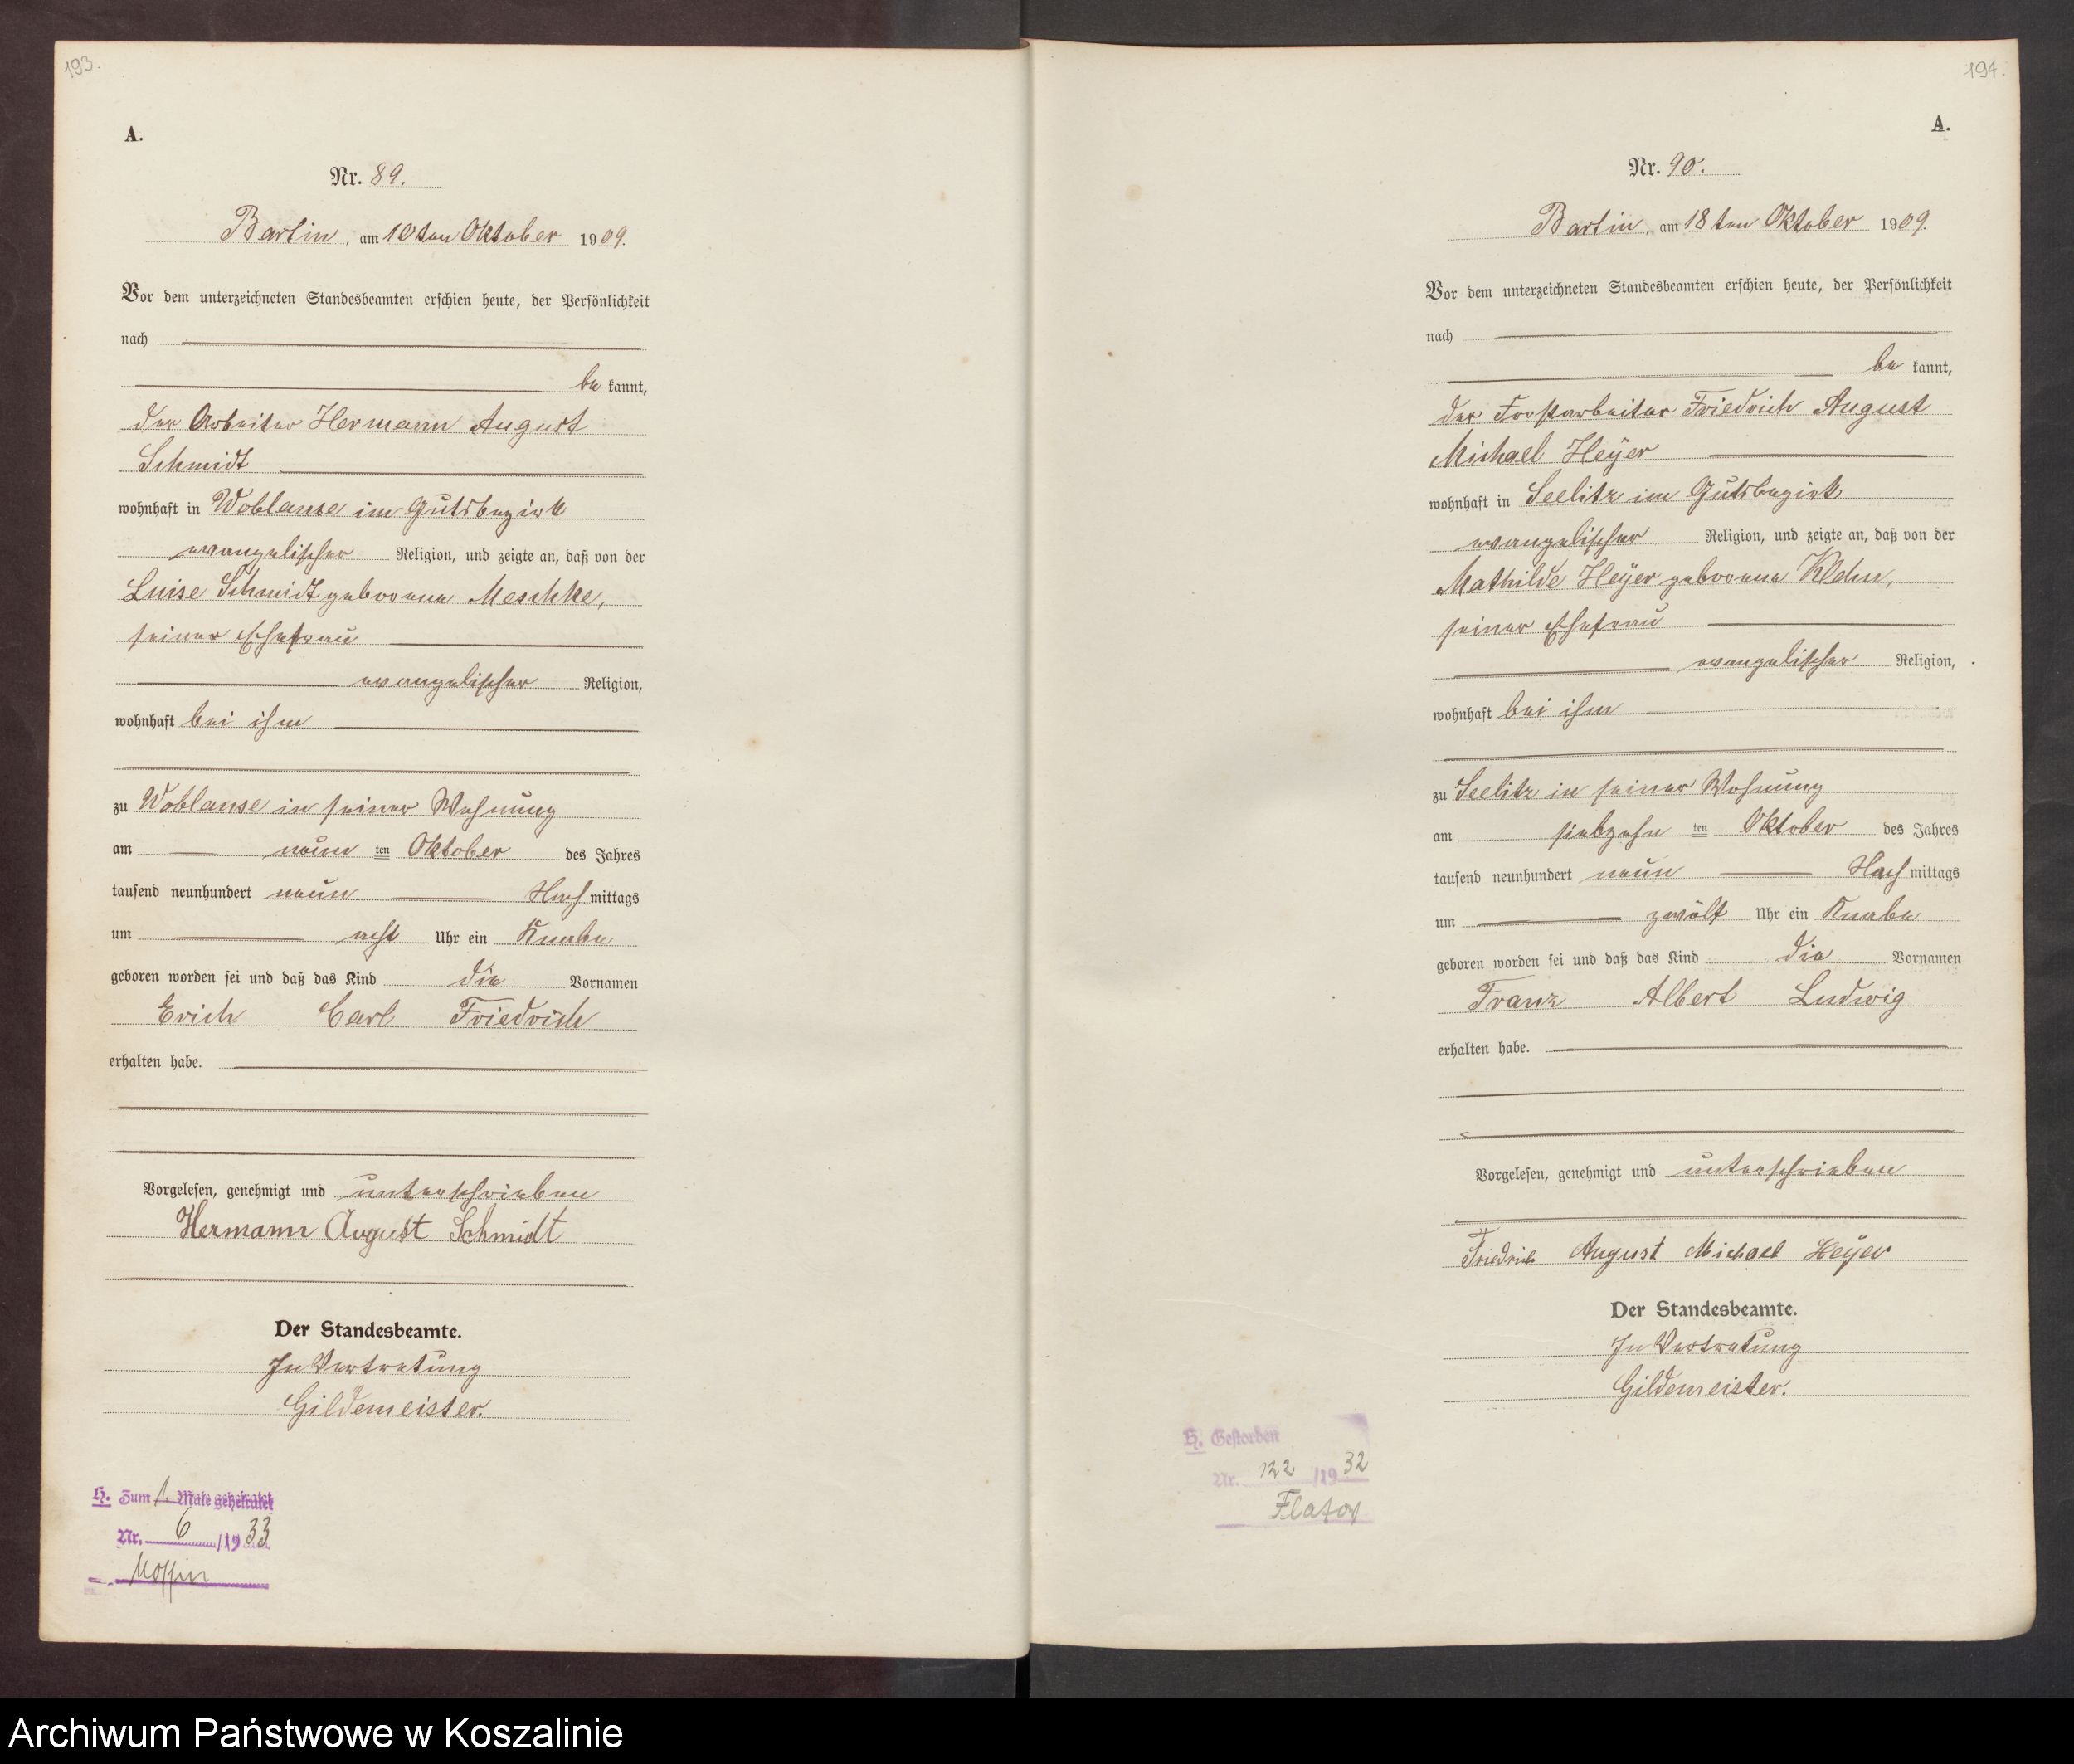 193.
A.
Nr. 89.
Bartin, am 10ten Oktober 1909.
Vor dem unterzeichneten Standesbeamten erschien heute, der Persönlichkeit
nach
be kannt,
der Arbeiter Hermann August
Schmidt
wohnhaft in Woblanse im Gutsbezirk
evangelischer Religion, und zeigte an, daß von der
Luise Schmidt geborene Meschke,
seiner Ehefrau
evangelischer Religion,
wohnhaft bei ihm
zu Woblanse in seiner Wohnung
am neun ten Oktober des Jahres
tausend neunhundert neun Nach mittags
um acht Uhr ein Knabe
geboren worden sei und daß das Kind die Vornamen
Erich Carl Friedrich
erhalten habe.
Vorgelesen, genehmigt und unterschrieben
Hermann August Schmidt
Der Standesbeamte.
In Vertretung
Gildemeister.
H. Zum 1. Male geheiratet
Nr. 6 /1933
194.
A.
Nr. 90.
Bartin, am 18ten Oktober 1909.
Vor dem unterzeichneten Standesbeamten erschien heute, der Persönlichkeit
nach
be kannt,
der Forstarbeiter Friedrich August
Michael Heÿer
wohnhaft in Seelitz im Gutsbezirk
evangelischer Religion, und zeigte an, daß von der
Mathilde Heÿer geborene
seiner Ehefrau
evangelischer Religion,
wohnhaft bei ihm
zu Seelitz in seiner Wohnung
am siebzehn ten Oktober des Jahres
tausend neunhundert neun Nach mittags
um zwölf Uhr ein Knabe
geboren worden sei und daß das Kind die Vornamen
Franz Albert Ludwig
erhalten habe.
Vorgelesen, genehmigt und unterschrieben
Friedrich August Michael Heÿer
Der Standesbeamte.
In Vertretung
Gildemeister.
H. Gestorben
Nr. 122 /1932
Flatow
Archiwum Państwowe w Koszalinie